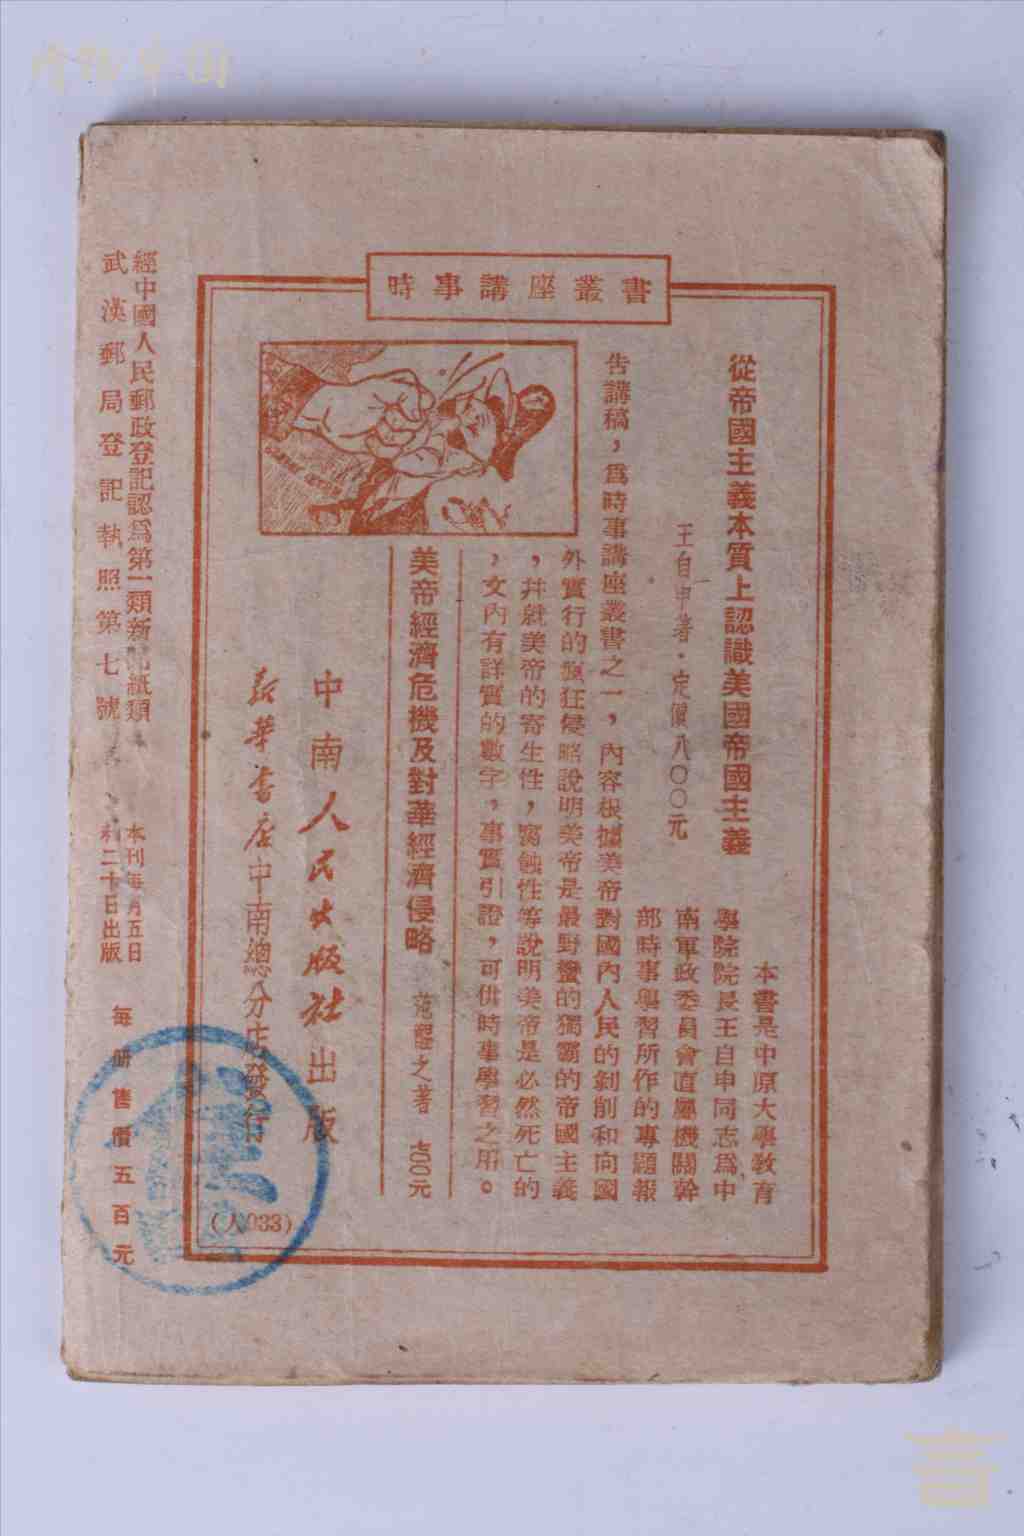 時事講座叢書
從帝國主義本質上認識美國帝國主義
王自申著·定價八〇〇元
本書是中原大學教育
學院院長王自申同志爲中
南軍政委員會直屬機關幹
部時事學習所作的專題報
告講稿，爲時事講座叢書之一，內容根據美帝對國內人民的剝削和向國
外實行的瘋狂侵略說明美帝是最野蠻的獨霸的帝國主義
，幷就美帝的寄生性，腐蝕性等說明美帝是必然死亡的
，文內有詳實的數字，事實引證，可供時事學習之用。
美帝經濟危機及對華經濟侵略
范醒之著 七〇〇元
中南人民出版社出版
新華書店中南總分店發行
(人033)
經中國人民郵政登記認爲第一類新聞紙類
武漢郵局登記執照第七號
本刊每月五日
和二十日出版
每册售價五百元